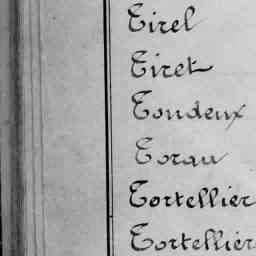 Tirel
Tiret
Tondeux
Torau
Tortellier
Tortellier